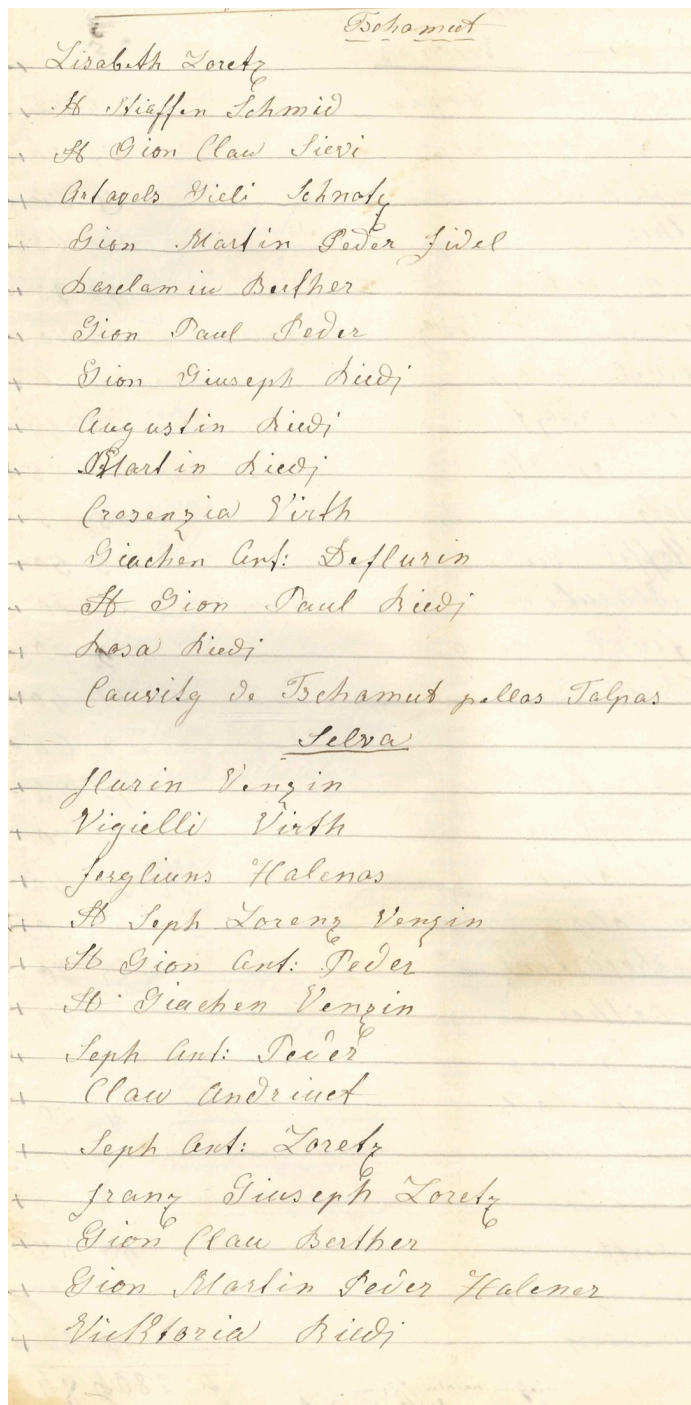 Tschamut
Lisabeth Loretz
St Stiaffen Schmid
St Gion Clau Sievi
Artavels Gieli Schnatz
Gion Martin Peder Fidel
Barclamiu Berther
Gion Paul Peder
Gion Giuseph Riedi
Augustin Riedi
Martin Riedi
Crosenzia Virth
Giachen Ant: Deflurin
St Gion Paul Riedi
Rosa Riedi
Cauvitg de Tschamut pellas Talpas
Selva
Flurin Venzin
Vigielli Virth
Jergliuns Halenas
St Seph Lorenz Venzin
St Gion Ant: Peder
St Giachen Venzin
Seph Ant: Peder
Clau Andriuet
Seph Ant: Loretz
Franz Giuseph Loretz
Gion Clau Berther
Gion Martin Peder Halener
Vicktoria Riedi